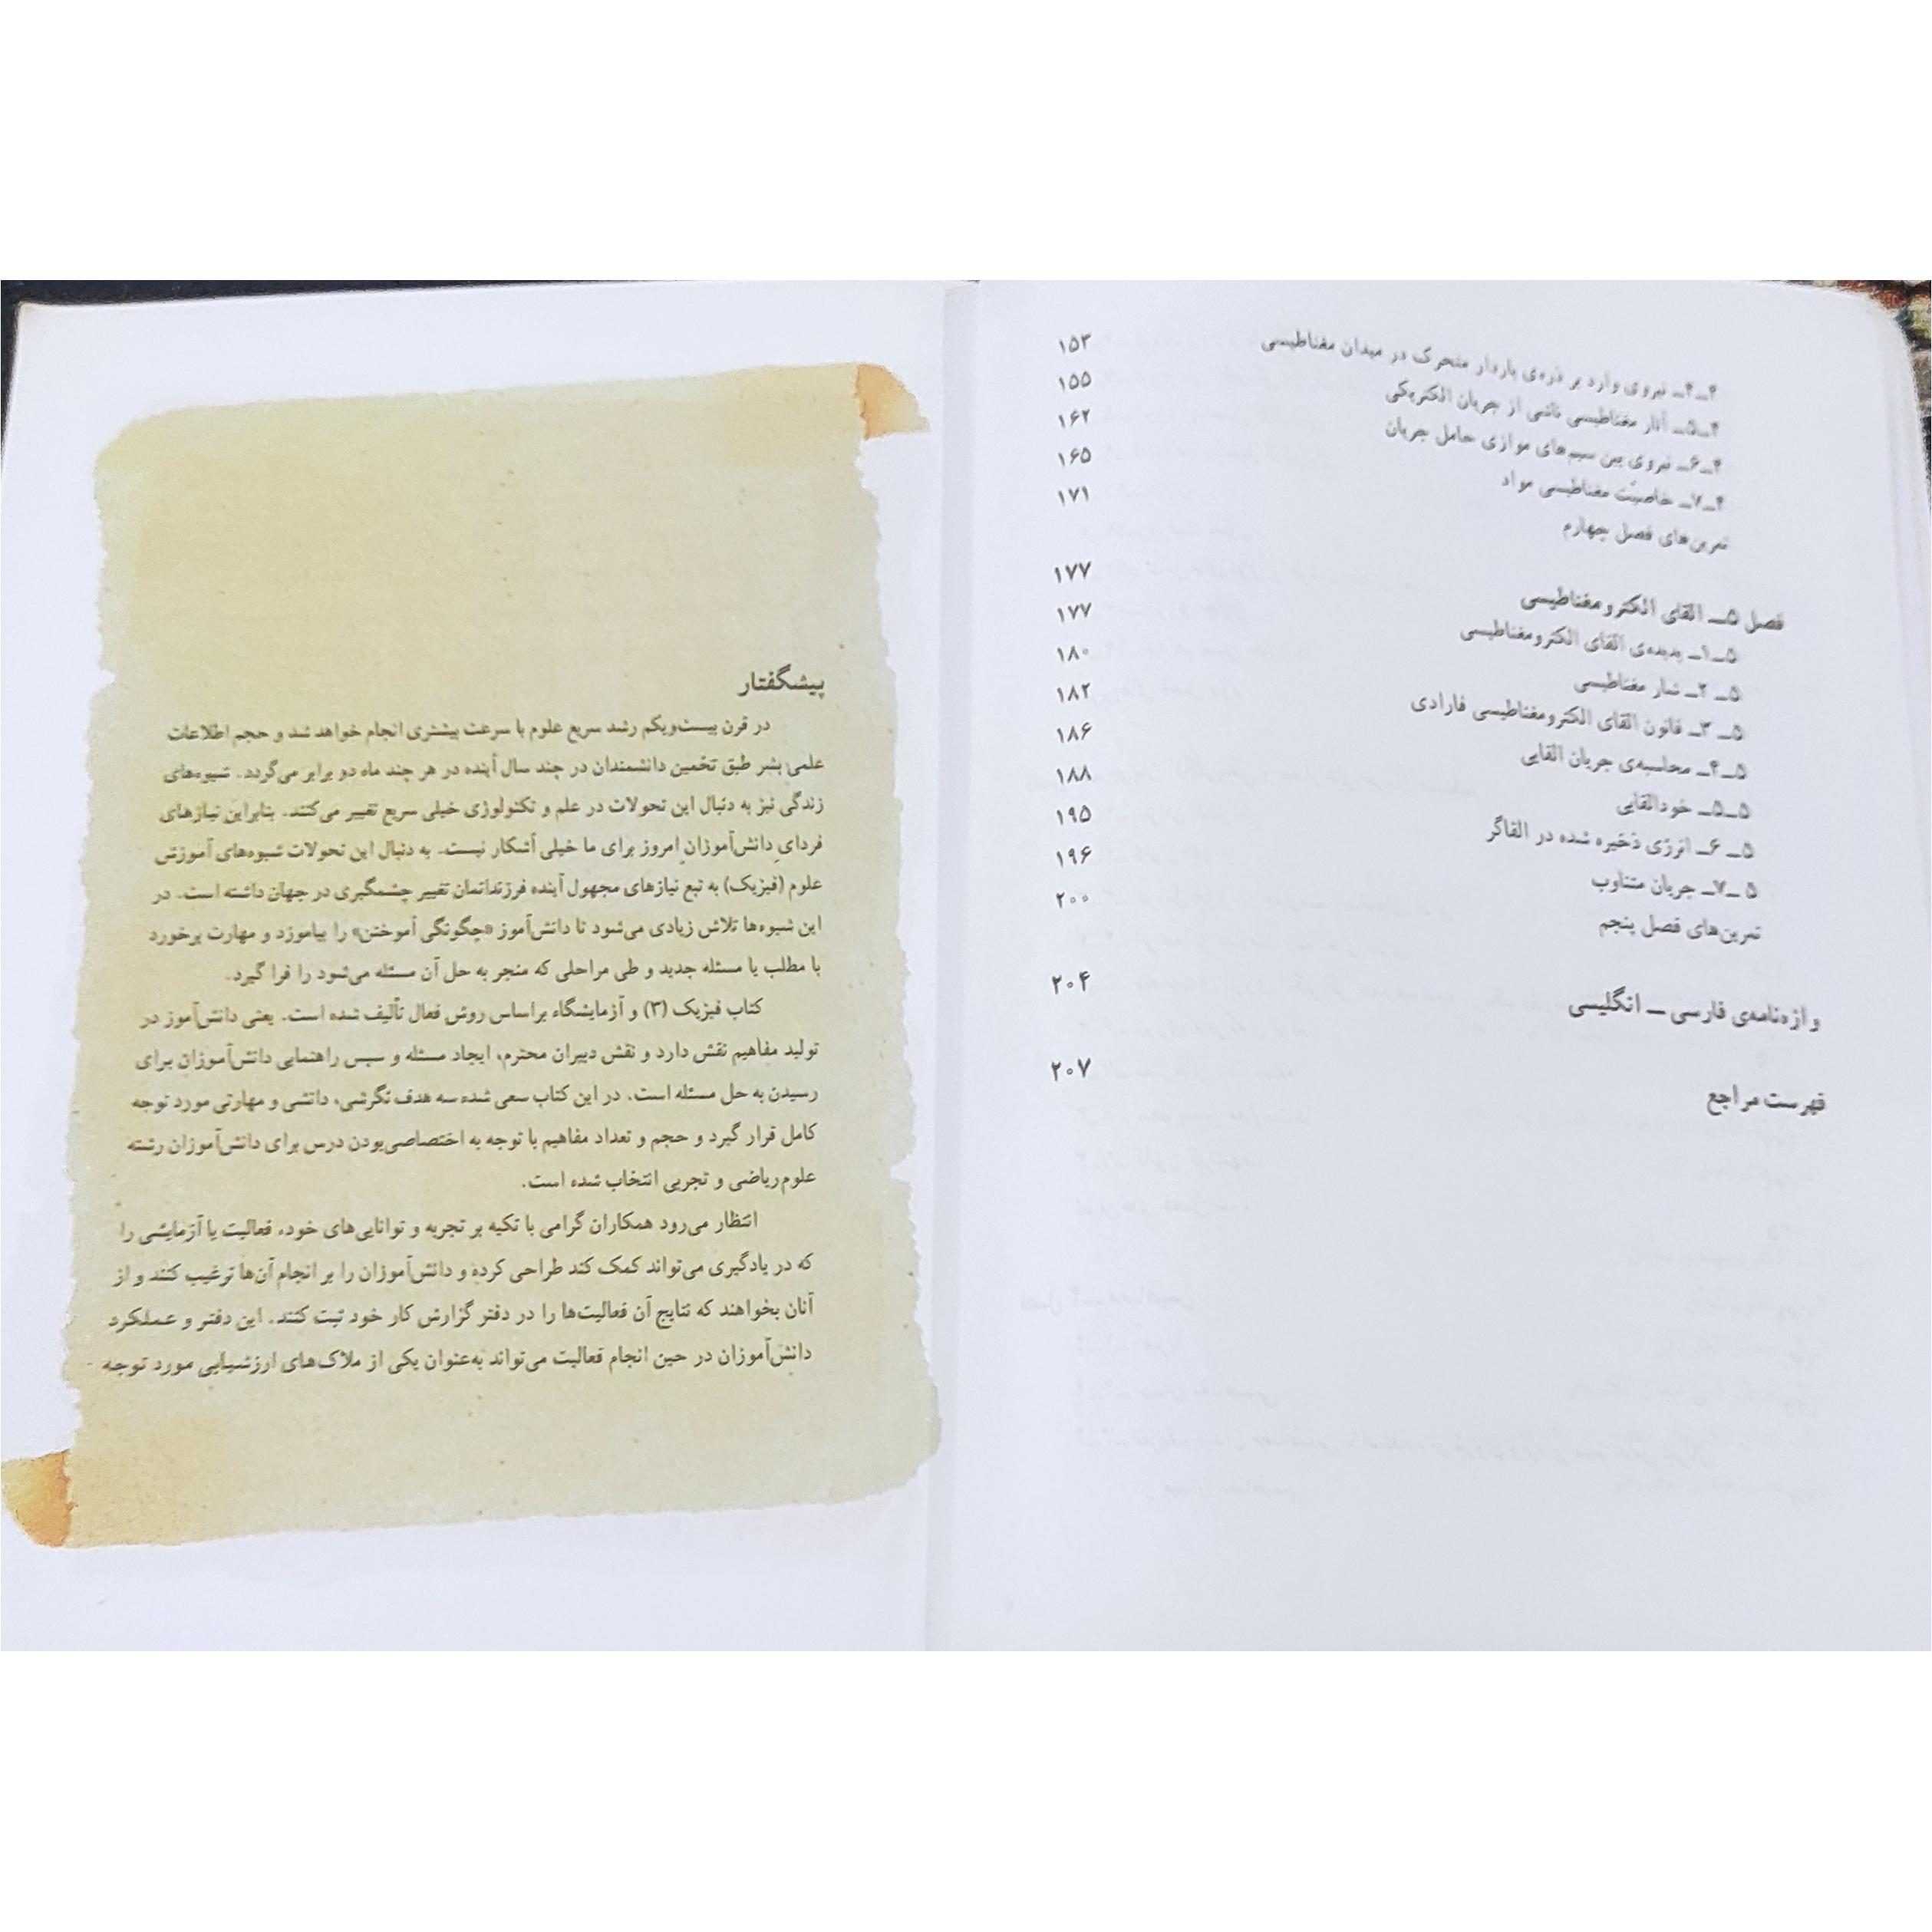 ۴ــ۴ــ نیروی وارد بر ذره‌ی باردار متحرک در میدان مغناطیسی ۱۵۳
۴ــ۵ــ آثار مغناطیسی ناشی از جریان الکتریکی ۱۵۵
۴ــ۶ــ نیروی بین سیم‌های موازی حامل جریان ۱۶۲
۴ــ۷ــ خاصیّت مغناطیسی مواد ۱۶۵
تمرین‌های فصل چهارم ۱۷۱
فصل ۵ــ القای الکترومغناطیسی ۱۷۷
۵ــ۱ــ پدیده‌ی القای الکترومغناطیسی ۱۷۷
۵ــ ۲ــ شار مغناطیسی ۱۸۰
۵ــ ۳ــ قانون القای الکترومغناطیسی فارادی ۱۸۲
۵ــ۴ــ محاسبه‌ی جریان القایی ۱۸۶
۵ــ۵ــ خودالقایی ۱۸۸
۵ــ ۶ــ انرژی ذخیره شده در القاگر ۱۹۵
۵ ــ۷ــ جریان متناوب ۱۹۶
تمرین‌های فصل پنجم ۲۰۰
واژه‌نامه‌ی فارسی ــ انگلیسی ۲۰۴
فهرست مراجع ۲۰۷
پیشگفتار
در قرن بیست‌ویکم رشد سریع علوم با سرعت بیشتری انجام خواهد شد و حجم اطلاعات
علمی بشر طبق تخمین دانشمندان در چند سال آینده در هر چند ماه دو برابر می‌گردد. شیوه‌های
زندگی نیز به دنبال این تحولات در علم و تکنولوژی خیلی سریع تغییر می‌کنند. بنابراین نیازهای
فردای دانش‌آموزان امروز برای ما خیلی آشکار نیست. به دنبال این تحولات شیوه‌های آموزش
علوم (فیزیک) به تبع نیازهای مجهول آینده فرزندانمان تغییر چشمگیری در جهان داشته است. در
این شیوه‌ها تلاش زیادی می‌شود تا دانش‌آموز «چگونگی آموختن» را بیاموزد و مهارت برخورد
با مطلب یا مسئله جدید و طی مراحلی که منجر به حل آن مسئله می‌شود را فرا گیرد.
کتاب فیزیک (۳) و آزمایشگاه براساس روش فعال تألیف شده است. یعنی دانش‌آموز در
تولید مفاهیم نقش دارد و نقش دبیران محترم، ایجاد مسئله و سپس راهنمایی دانش‌آموزان برای
رسیدن به حل مسئله است. در این کتاب سعی شده سه هدف نگرشی، دانشی و مهارتی مورد توجه
کامل قرار گیرد و حجم و تعداد مفاهیم با توجه به اختصاصی‌بودن درس برای دانش‌آموزان رشته
علوم ریاضی و تجربی انتخاب شده است.
انتظار می‌رود همکاران گرامی با تکیه بر تجربه و توانایی‌های خود، فعالیت یا آزمایشی را
که در یادگیری می‌تواند کمک کند طراحی کرده و دانش‌آموزان را بر انجام آن‌ها ترغیب کنند و از
آنان بخواهند که نتایج آن فعالیت‌ها را در دفتر گزارش کار خود ثبت کنند. این دفتر و عملکرد
دانش‌آموزان در حین انجام فعالیت می‌تواند به‌عنوان یکی از ملاک‌های ارزشیابی مورد توجه